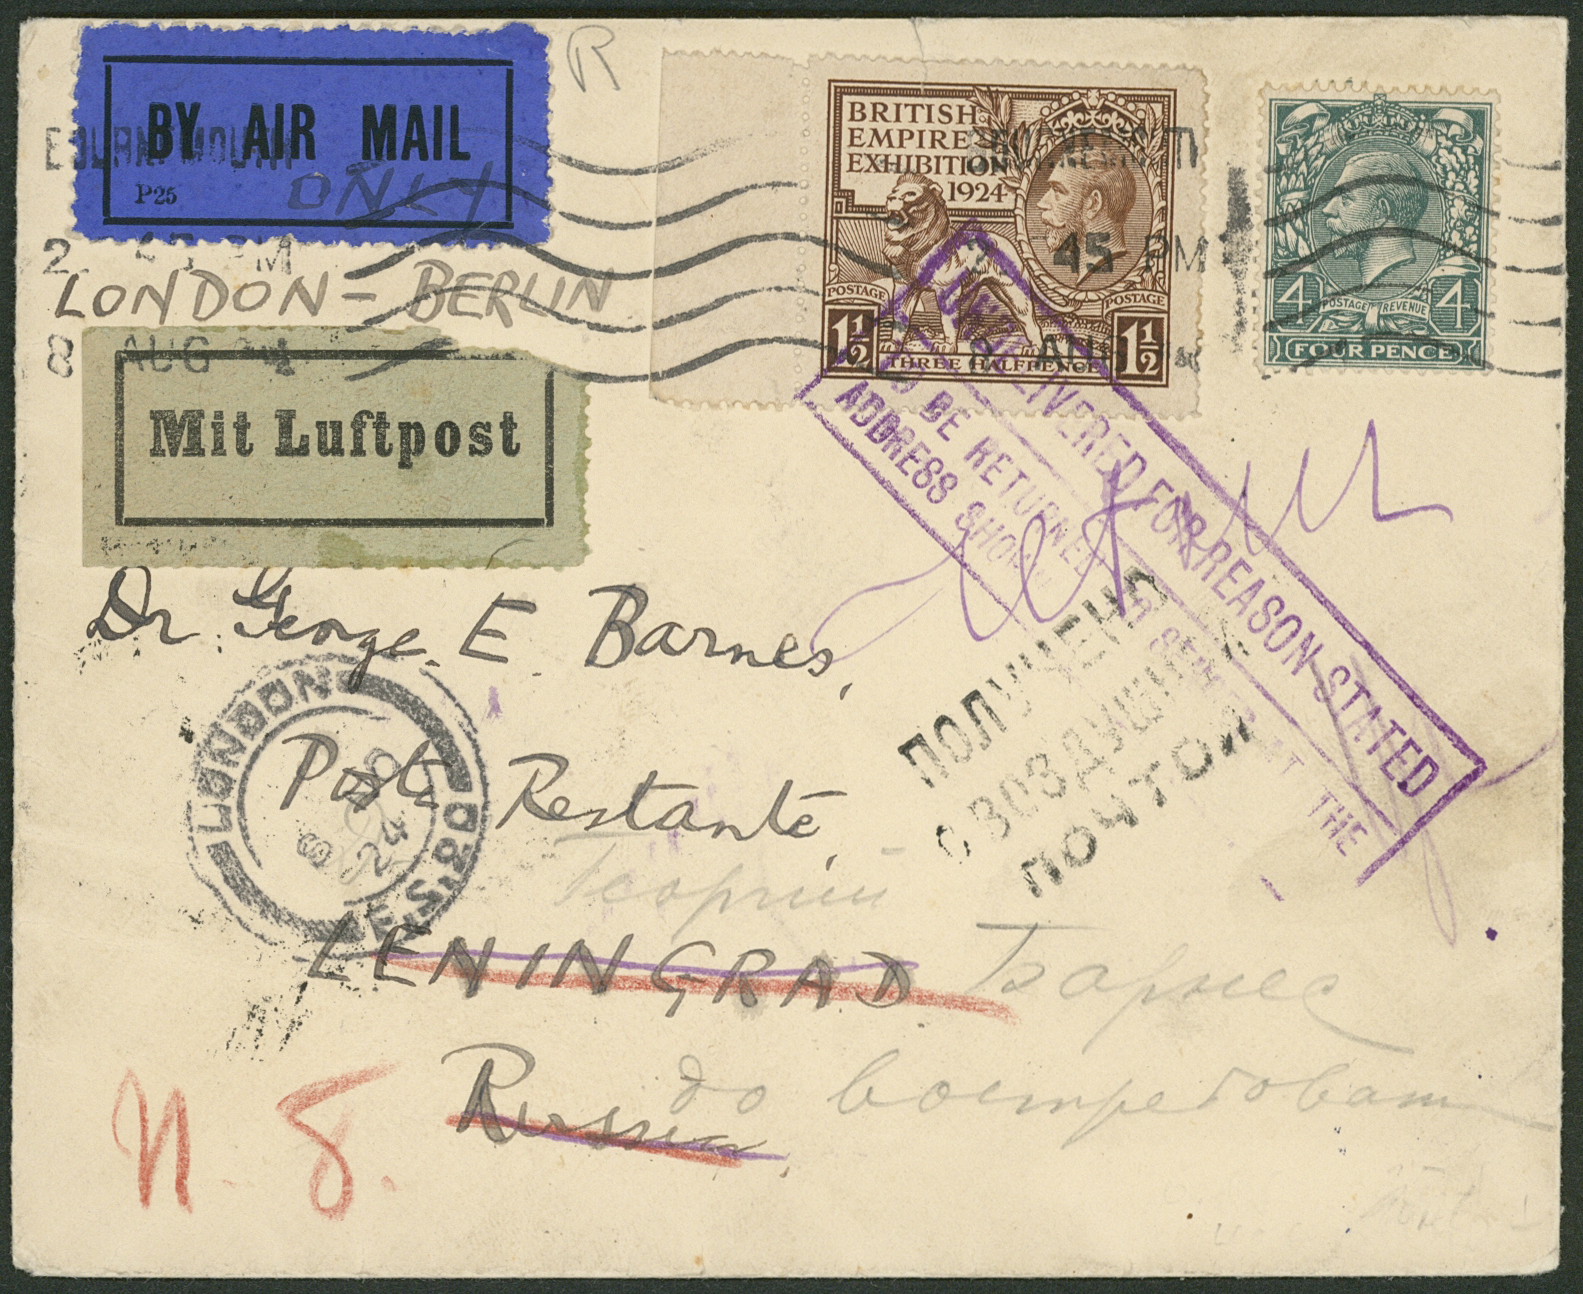 BY AIR MAIL
P25
ONLY
R
BOURNEMOUTH
2 45 PM
8 AUG 24
LONDON - BERLIN
Mit Luftpost
BRITISH
EMPIRE
EXHIBITION
1924
POSTAGE POSTAGE
1½ 1½
THREE HALFPENCE
45 PM
4 POSTAGE REVENUE 4
FOUR PENCE
UNDELIVERED FOR REASON STATED
TO BE RETURNED SENDER AT THE
ADDRESS SHOWN
ПОЛУЧЕНО
С ВОЗДУШНОЙ
ПОЧТОЙ
Dr. George. E. Barnes,
Poste Restante,
LENINGRAD
Russia.
LONDON
24
Барнес
до востребоват